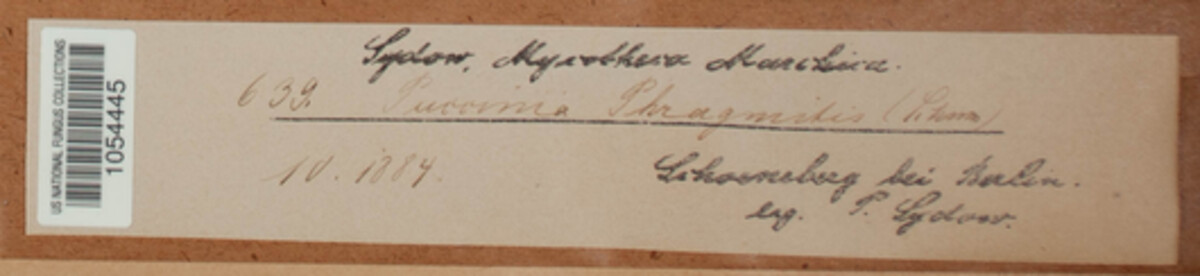 US NATIONAL FUNGUS COLLECTIONS
1054445
Sydow, Mycotheca Marchica.
639. Puccinia Phragmitis (Schum)
10. 1884.
Schoeneberg bei Berlin.
leg. P. Sydow.